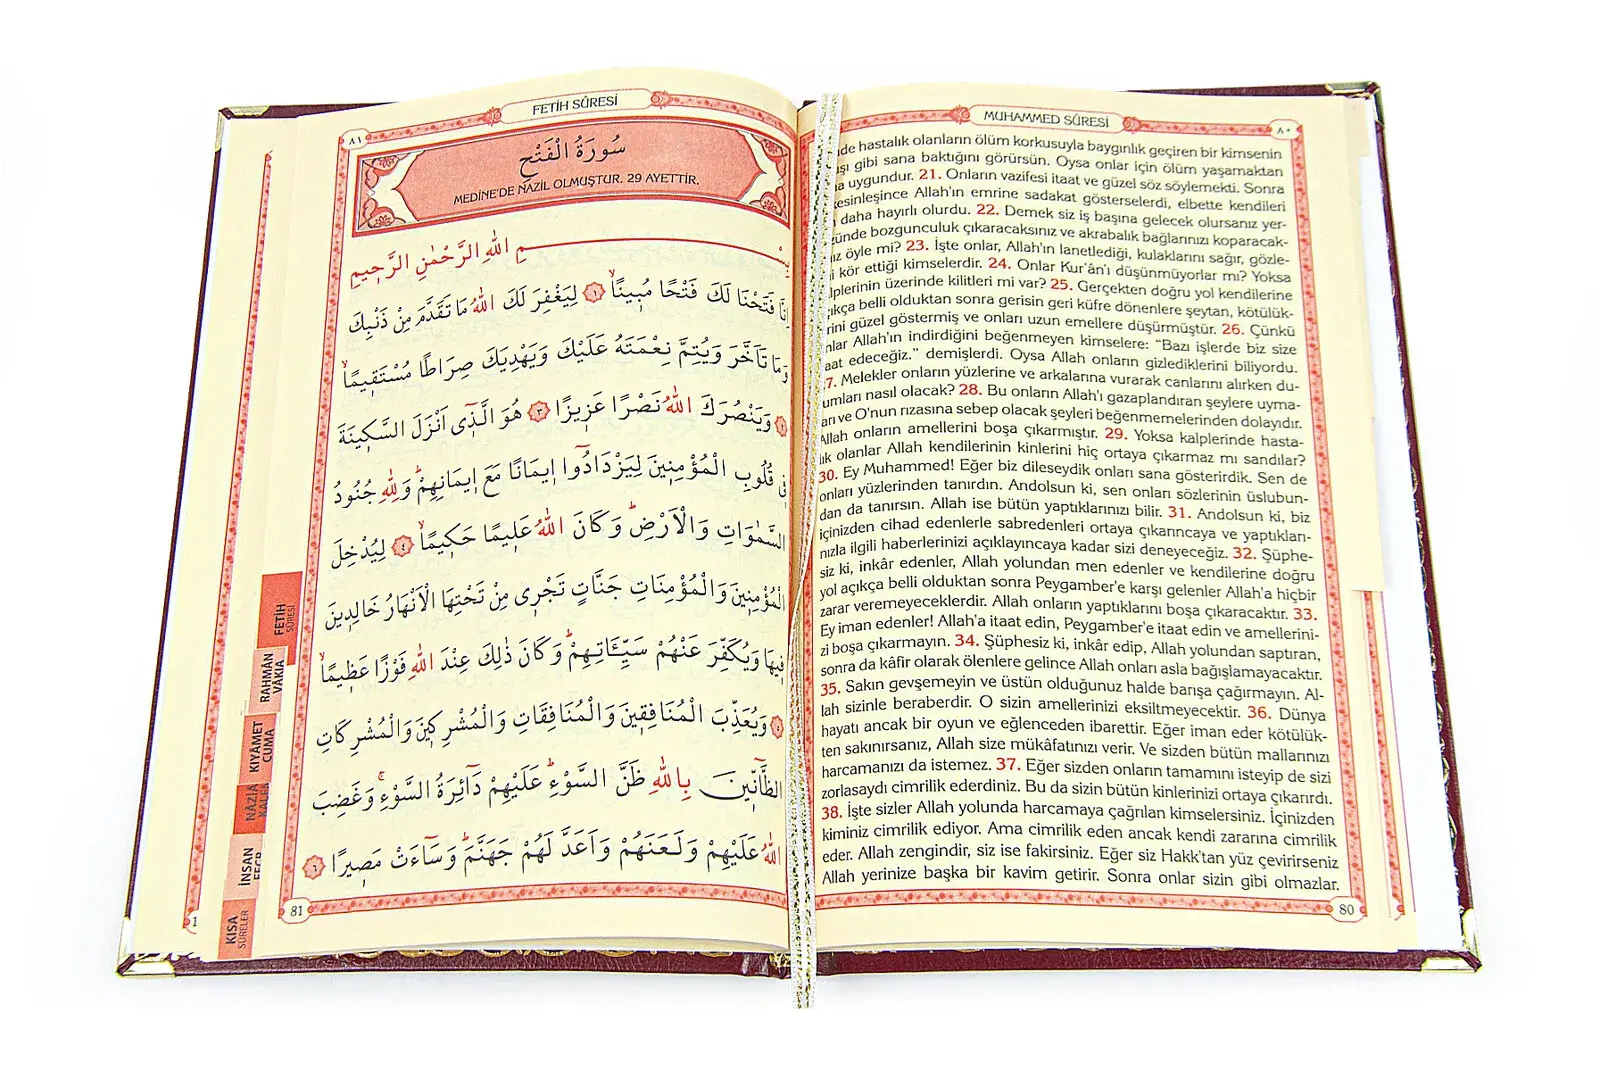 MUHAMMED SÛRESİ
٨٠
de hastalık olanların ölüm korkusuyla baygınlık geçiren bir kimsenin
gibi sana baktığını görürsün. Oysa onlar için ölüm yaşamaktan
uygundur. 21. Onların vazifesi itaat ve güzel söz söylemekti. Sonra
kesinleşince Allah'ın emrine sadakat gösterselerdi, elbette kendileri
daha hayırlı olurdu. 22. Demek siz iş başına gelecek olursanız yer-
bozgunculuk çıkaracaksınız ve akrabalık bağlarınızı koparacak-
öyle mi? 23. İşte onlar, Allah'ın lanetlediği, kulaklarını sağır, gözle-
kör ettiği kimselerdir. 24. Onlar Kur'ân'ı düşünmüyorlar mı? Yoksa
üzerinde kilitleri mi var? 25. Gerçekten doğru yol kendilerine
belli olduktan sonra gerisin geri küfre dönenlere şeytan, kötülük-
rini güzel göstermiş ve onları uzun emellere düşürmüştür. 26. Çünkü
nlar Allah'ın indirdiğini beğenmeyen kimselere: “Bazı işlerde biz size
aat edeceğiz.” demişlerdi. Oysa Allah onların gizlediklerini biliyordu.
7. Melekler onların yüzlerine ve arkalarına vurarak canlarını alırken du-
umları nasıl olacak? 28. Bu onların Allah'ı gazaplandıran şeylere uyma-
arı ve O'nun rızasına sebep olacak şeyleri beğenmemelerinden dolayıdır.
Allah onların amellerini boşa çıkarmıştır. 29. Yoksa kalplerinde hasta-
lık olanlar Allah kendilerinin kinlerini hiç ortaya çıkarmaz mı sandılar?
30. Ey Muhammed! Eğer biz dileseydik onları sana gösterirdik. Sen de
onları yüzlerinden tanırdın. Andolsun ki, sen onları sözlerinin üslubun-
dan da tanırsın. Allah ise bütün yaptıklarınızı bilir. 31. Andolsun ki, biz
içinizden cihad edenlerle sabredenleri ortaya çıkarıncaya ve yaptıkları-
nızla ilgili haberlerinizi açıklayıncaya kadar sizi deneyeceğiz. 32. Şüphe-
siz ki, inkâr edenler, Allah yolundan men edenler ve kendilerine doğru
yol açıkça belli olduktan sonra Peygamber'e karşı gelenler Allah'a hiçbir
zarar veremeyeceklerdir. Allah onların yaptıklarını boşa çıkaracaktır. 33.
Ey iman edenler! Allah'a itaat edin, Peygamber'e itaat edin ve amellerini-
zi boşa çıkarmayın. 34. Şüphesiz ki, inkâr edip, Allah yolundan saptıran,
sonra da kâfir olarak ölenlere gelince Allah onları asla bağışlamayacaktır.
35. Sakın gevşemeyin ve üstün olduğunuz halde barışa çağırmayın. Al-
lah sizinle beraberdir. O sizin amellerinizi eksiltmeyecektir. 36. Dünya
hayatı ancak bir oyun ve eğlenceden ibarettir. Eğer iman eder kötülük-
ten sakınırsanız, Allah size mükâfatınızı verir. Ve sizden bütün mallarınızı
harcamanızı da istemez. 37. Eğer sizden onların tamamını isteyip de sizi
zorlasaydı cimrilik ederdiniz. Bu da sizin bütün kinlerinizi ortaya çıkarırdı.
38. İşte sizler Allah yolunda harcamaya çağrılan kimselersiniz. İçinizden
kiminiz cimrilik ediyor. Ama cimrilik eden ancak kendi zararına cimrilik
eder. Allah zengindir, siz ise fakirsiniz. Eğer siz Hakk'tan yüz çevirirseniz
Allah yerinize başka bir kavim getirir. Sonra onlar sizin gibi olmazlar.
80
FETİH SÛRESİ
٨١
سُورَةُ الْفَتْحِ
MEDİNE'DE NAZİL OLMUŞTUR. 29 AYETTİR.
بِسْمِ اللهِ الرَّحْمٰنِ الرَّحٖيمِ
اِنَّا فَتَحْنَا لَكَ فَتْحًا مُبٖينًاۙ ﴿١﴾ لِيَغْفِرَ لَكَ اللهُ مَا تَقَدَّمَ مِنْ ذَنْبِكَ
وَمَا تَاَخَّرَ وَيُتِمَّ نِعْمَتَهُ عَلَيْكَ وَيَهْدِيَكَ صِرَاطًا مُسْتَقٖيمًاۙ
﴿٢﴾ وَيَنْصُرَكَ اللهُ نَصْرًا عَزٖيزًا ﴿٣﴾ هُوَ الَّذٖٓى اَنْزَلَ السَّكٖينَةَ
فٖى قُلُوبِ الْمُؤْمِنٖينَ لِيَزْدَادُٓوا اٖيمَانًا مَعَ اٖيمَانِهِمْؕ وَلِلّٰهِ جُنُودُ
السَّمٰوَاتِ وَالْاَرْضِؕ وَكَانَ اللهُ عَلٖيمًا حَكٖيمًاۙ ﴿٤﴾ لِيُدْخِلَ
الْمُؤْمِنٖينَ وَالْمُؤْمِنَاتِ جَنَّاتٍ تَجْرٖى مِنْ تَحْتِهَا الْاَنْهَارُ خَالِدٖينَ
فٖيهَا وَيُكَفِّرَ عَنْهُمْ سَيِّـَٔاتِهِمْؕ وَكَانَ ذٰلِكَ عِنْدَ اللهِ فَوْزًا عَظٖيمًاۙ
﴿٥﴾ وَيُعَذِّبَ الْمُنَافِقٖينَ وَالْمُنَافِقَاتِ وَالْمُشْرِكٖينَ وَالْمُشْرِكَاتِ
الظَّٓانّٖينَ بِاللهِ ظَنَّ السَّوْءِؕ عَلَيْهِمْ دَٓائِرَةُ السَّوْءِۚ وَغَضِبَ
اللهُ عَلَيْهِمْ وَلَعَنَهُمْ وَاَعَدَّ لَهُمْ جَهَنَّمَؕ وَسَٓاءَتْ مَصٖيرًا ﴿٦﴾
81
FETİH
SÛRESİ
RAHMÂN
VÂKIA
KIYÂMET
CUMA
İNSAN
KISA
SÛRELER
1